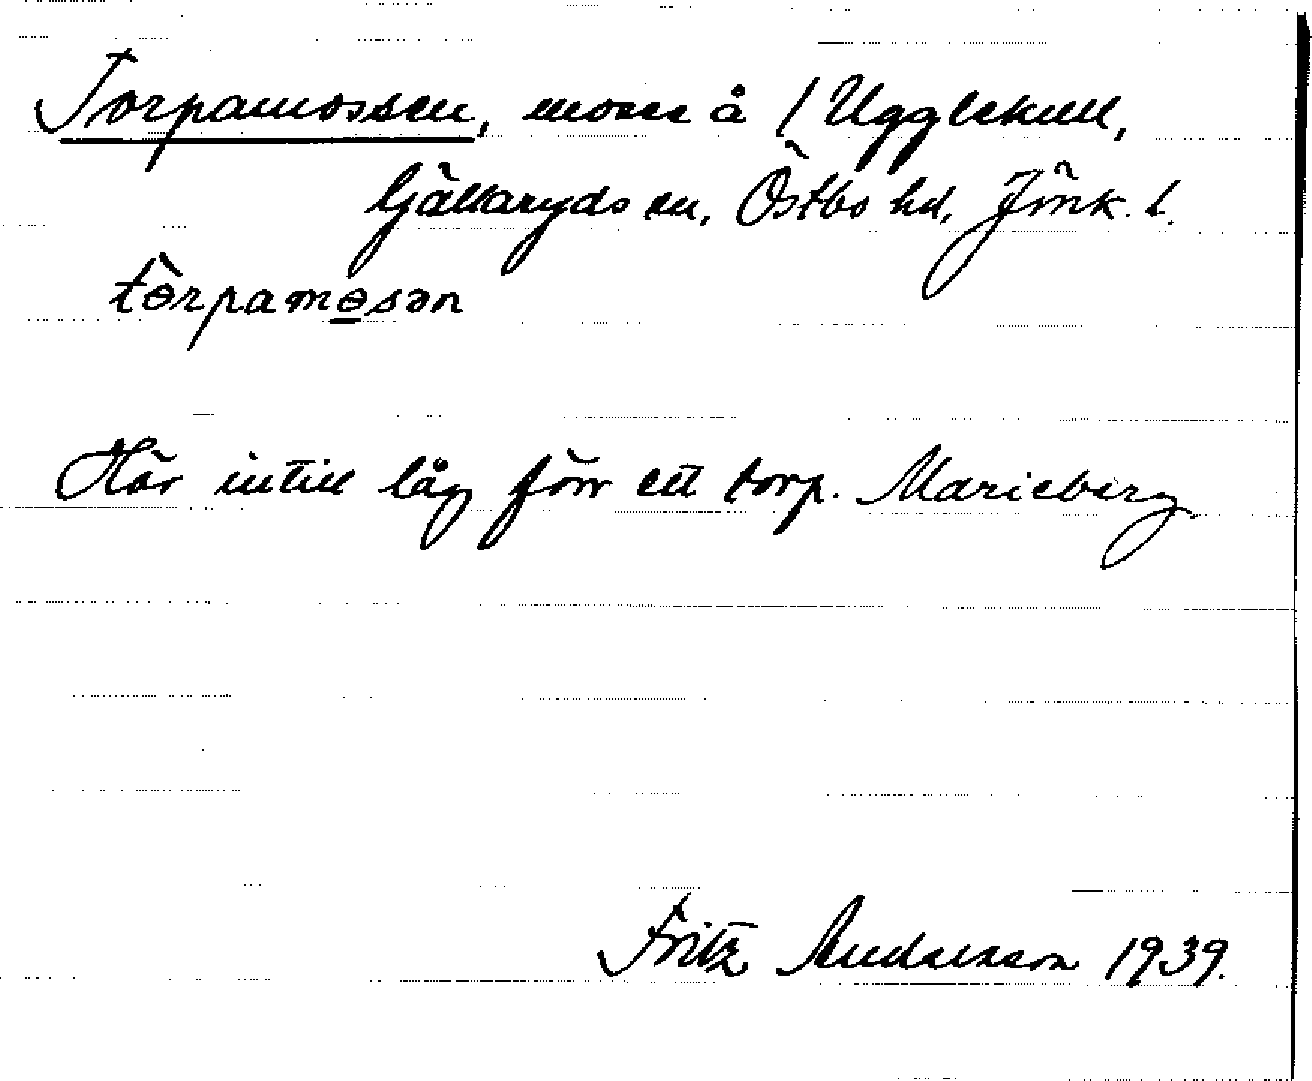 Torpamossen, mosse å / Ugglekull,
Gällaryds sn, Östbo hd, Jönk. l.
tɵrpamɵsən
Här intill låg förr ett torp. Marieberg
Fritz Andersson 1939.